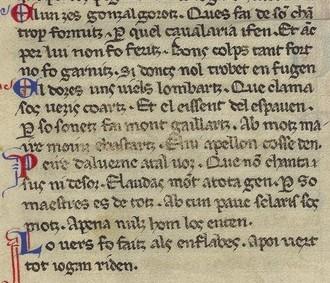 El ui zes gonzalgorotz. Ques fai de sō chā
trop formitz. P quel cavalaria ifen. Et āc
per lui non fo feritz. Bons colps tant fort
no fo garnitz. Si doncs nol trobet en fugen
El dores uns viels lombartz. Que clama
sos vezis coartz. Et el eissent del espauen.
P so sonetz fai mont gaillartz. Ab motz ma
Peire dalverne a tal voz. Que nō chanta
sus ni desoz. Elaudas mōt atota gen. P so
maestres es de totz. Ab cun pauc selaris sos
motz. Apena nulz hom los enten.
Lo vers fo faitz als enflabos. Apoi vert
tot iogan riden.